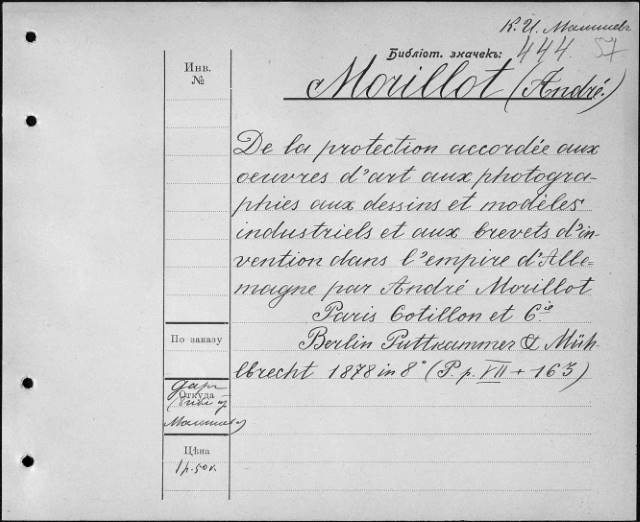 К. И. Малышев
Библіот. значекъ: 444. 57
Инв.
№
Morillot (André.)
De la protection accordée aux
oeuvres d'art aux photogra-
phies aux dessins et modèles
industriels et aux brevets d'in-
vention dans l'empire d'Alle-
magne par André Morillot
Paris Cotillon et Cie
По заказу
Berlin Puttkammer & Müh-
lbrecht 1878 in 8° (P. p. VII + 163)
Откуда
даръ
Малышева
Цѣна
1 р. 50 к.